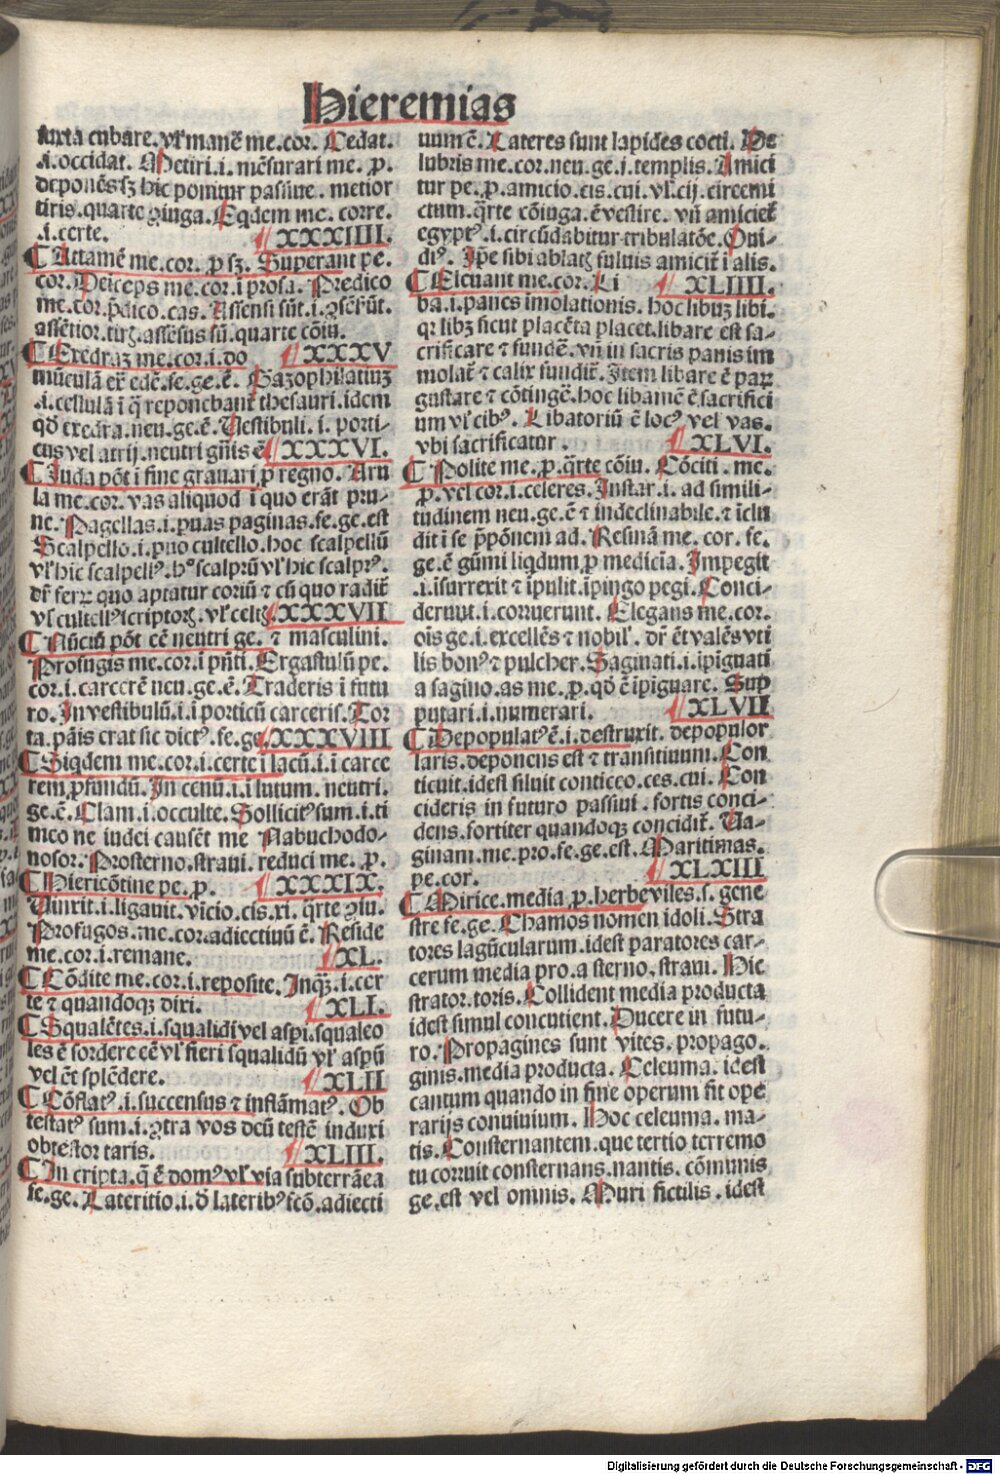 Hieremias
iuxta cubare. vl̕ manē me. cor. Cedat.
.i. occidat. Metiri .i. mēsurari me. p.
deponēs sꝫ hic ponitur passiue. metior
tiris. quarte ꝯiuga. Eqdem me. corre.
.i. certe. XXXIIII.
Attamē me. cor. p sꝫ. Superant pe.
cor. Deiceps me. cor. i prosa. Predico
me. cor. p̄dico. cas. Assensi sūt .i. ꝯsēserūt.
assētior. tirꝫ. assēsus sū. quarte cōiu.
Exedraꝫ me. cor. i. do XXXV
mūculā
.i. cellulā ī q̄ reponebant̄ thesauri. idem
qd̄ exedra. neu. ge. ē. Uestibuli .i. porti-
cus vel atrij. neutri gn̄is ē XXXVI.
Juda pōt i fine grauari p regno. Aru
la me. cor. vas aliquod ī quo erāt pru-
ne. Pagellas .i. puas paginas. fe. ge. est
Scalpello .i. puo cultello. hoc scalpellū
vl̕ hic scalpell⁹. h° scalprū vl̕ hic scalpr⁹.
dr̄ ferꝝ quo aptatur coriū ⁊ cū quo radit̄
vl̕ cultell⁹ scriptorꝫ. vl̕ celtꝫ. XXXVII
Nūciū pōt eē neutri ge. ⁊ masculini.
Profugis me. cor. i pn̄ti. Ergastulū pe.
cor. i. carcerē neu. ge. ē. Traderis ī futu
ro. In vestibulū .i. ī porticū carceris. Tor
ta. pāis erat sic dict⁹. fe. ge. XXXVIII
Siqdem me. cor. i. certe ī lacū .i. ī carce
rem. ꝓfundū. In cenū .i. ī lutum. neutri.
ge. ē. Clam .i. occulte. Sollicit⁹ sum .i. ti
meo ne iudei causēt me Nabuchodo-
nosor. Prosterno. straui. reduci me. p.
Hiericōtine pe. p. XXXIX.
Uinxit .i. ligauit. vicio. cis. xi. q̄rte ꝯiu.
Profugos. me. cor. adiectiuū ē. Reside
me. cor. i. remane. XL.
Cōdite me. cor. i. reposite. Inqꝫ .i. cer
te ⁊ quandoqꝫ dixi. XLI.
Squalētes .i. squalidi vel aspi. squaleo
les ē sordere eē vl̕ fieri squalidū vl̕ aspū
vel ēt splēdere. XLII
Cōflat⁹ .i. succensus ⁊ inflāmat⁹. Ob
testat⁹ sum .i. ꝯtra vos deū testē induxi
obtestor taris. XLIII.
In cripta. q̄ ē dom⁹ vl̕ via subterrāea
fe. ge. Lateritio .i. d̄ laterib⁹ fcō. adiecti
uum ē. Lateres sunt lapides cocti. De
lubris me. cor. neu. ge. i. templis. Amici
tur pe. p. amicio. cis. cui. vl̕ cij. circemi
ctum. q̄rte cōiuga. ē vestire. vn̄ amiciet̄
egypt⁹ .i. circūdabitur tribulatōe. Oui-
di⁹. Ip̄e sibi ablatꝫ fuluis amicit̄ i alis.
Eleuant me. cor. Li XLIIII.
ba .i. panes īmolationis. hoc libuꝫ libi.
qꝛ libꝫ sicut placēta placet. libare est sa-
crificare ⁊ fundē. vn̄ in sacris panis im
molat̄ ⁊ calix fundit̄. Item libare ē paꝝ
gustare ⁊ cōtingē. hoc libamē ē sacrifici
um vl̕ cib⁹. Libatoriū ē loc⁹ vel vas.
vbi sacrificatur. XLVI.
Polite me. p. q̄rte cōiu. Cōciti. me.
p. vel cor. i. celeres. Instar .i. ad simili-
tudinem neu. ge. ē ⁊ indeclinabile. ⁊ īclu
dit i se p̄pōnem ad. Resinā me. cor. fe.
ge. ē gūmi liqdum. p medicīa. Impegit
.i. īsurrexit ⁊ īpulit. īpingo pegi. Conci-
derunt .i. corruerunt. Elegans me. cor.
oīs ge. i. excellēs ⁊ nobil̕. dr̄ ēt valēs vti
lis bon⁹ ⁊ pulcher. Saginati .i. īpiguati
a sagino. as me. p. qd̄ ē īpiguare. Sup
putari .i. numerari. XLVII
Depopulat⁹ ē .i. destruxit. depopulor
laris. deponens est ⁊ transitiuum. Con
ticuit. idest siluit conticeo. ces. cui. Con
cideris in futuro passiui. fortis conci-
dens. fortiter quandoqꝫ concidit̄. Ua-
ginam. me. pro. fe. ge. est. Maritimas.
pe. cor. XLXIII
Mirice. media. p. herbe viles. s. gene
stre fe. ge. Chamos nomen idoli. Stra
tores lagūcularum. idest paratores car-
cerum media pro. a sterno. straui. Hic
strator. toris. Collident media producta
idest simul concutient. Ducere in futu-
ro. Propagines sunt vites. propago.
ginis. media producta. Celeuma. idest
cantum quando in fine operum fit ope
rarijs conuiuium. Hoc celeuma. ma-
tis. Consternantem. que tertio terremo
tu corruit consternans. nantis. cōmunis
ge. est vel omnis. Muri fictilis. idest
Digitalisierung gefördert durch die Deutsche Forschungsgemeinschaft - DFG